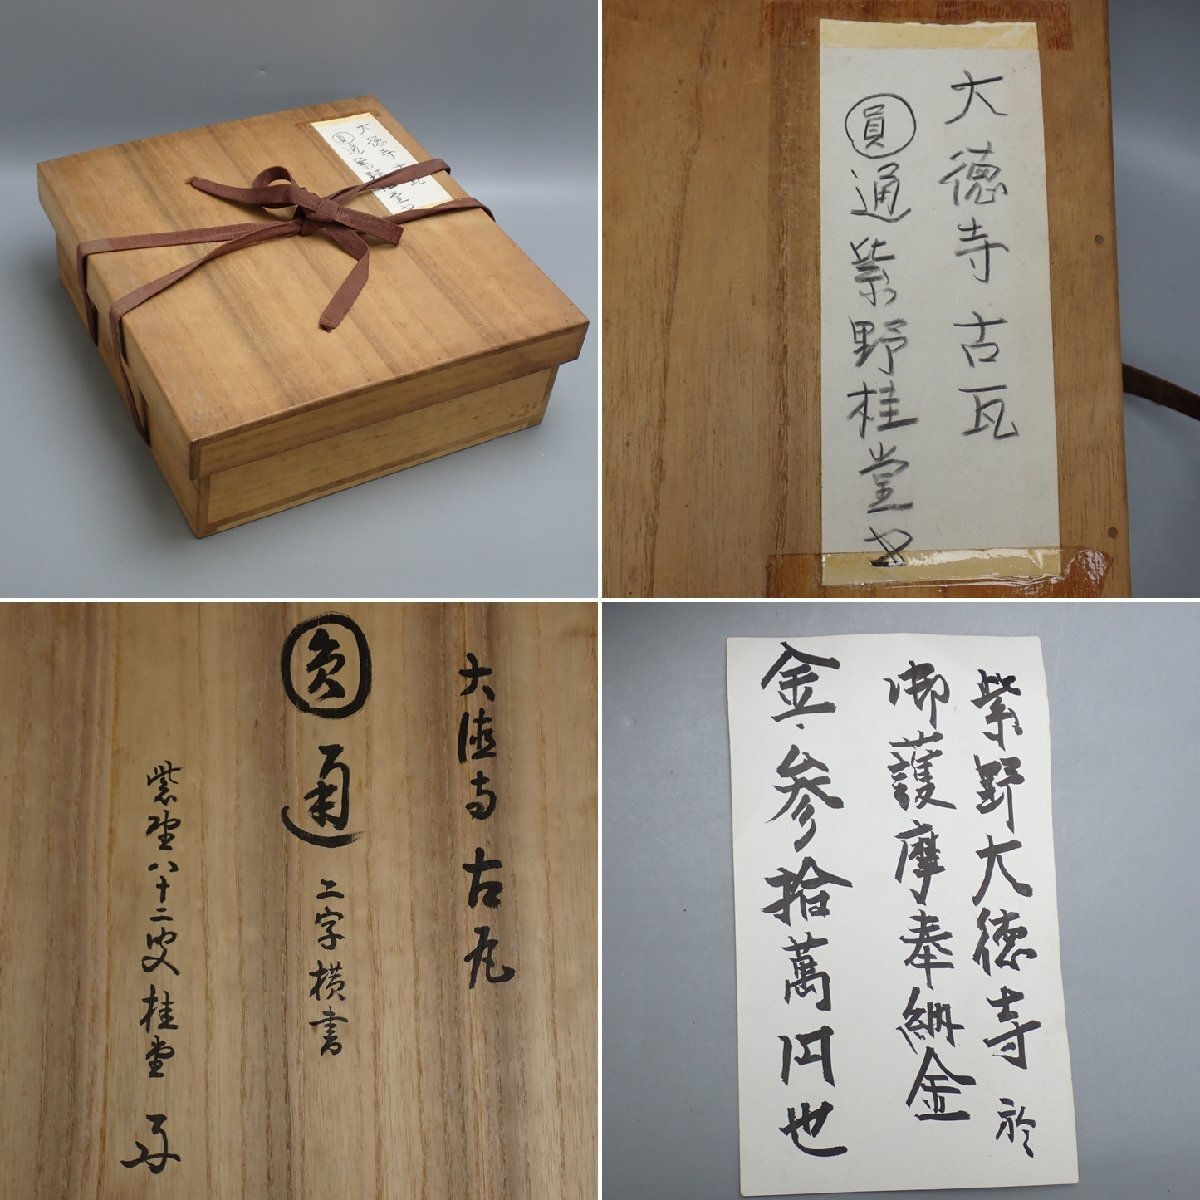 大徳寺古瓦
圓通紫野桂堂
大徳寺古瓦
圓通紫野桂堂
大徳寺古瓦
圓通二字横書
紫野八十二叟桂堂
紫野大徳寺於
御護摩奉納金
金、参拾萬円也